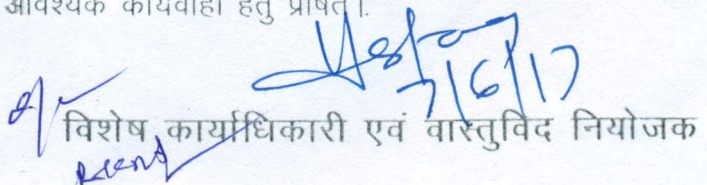 आवश्यक कार्यवाही हेतु प्रेषित।
7/6/17
विशेष कार्याधिकारी एवं वास्तुविद नियोजक